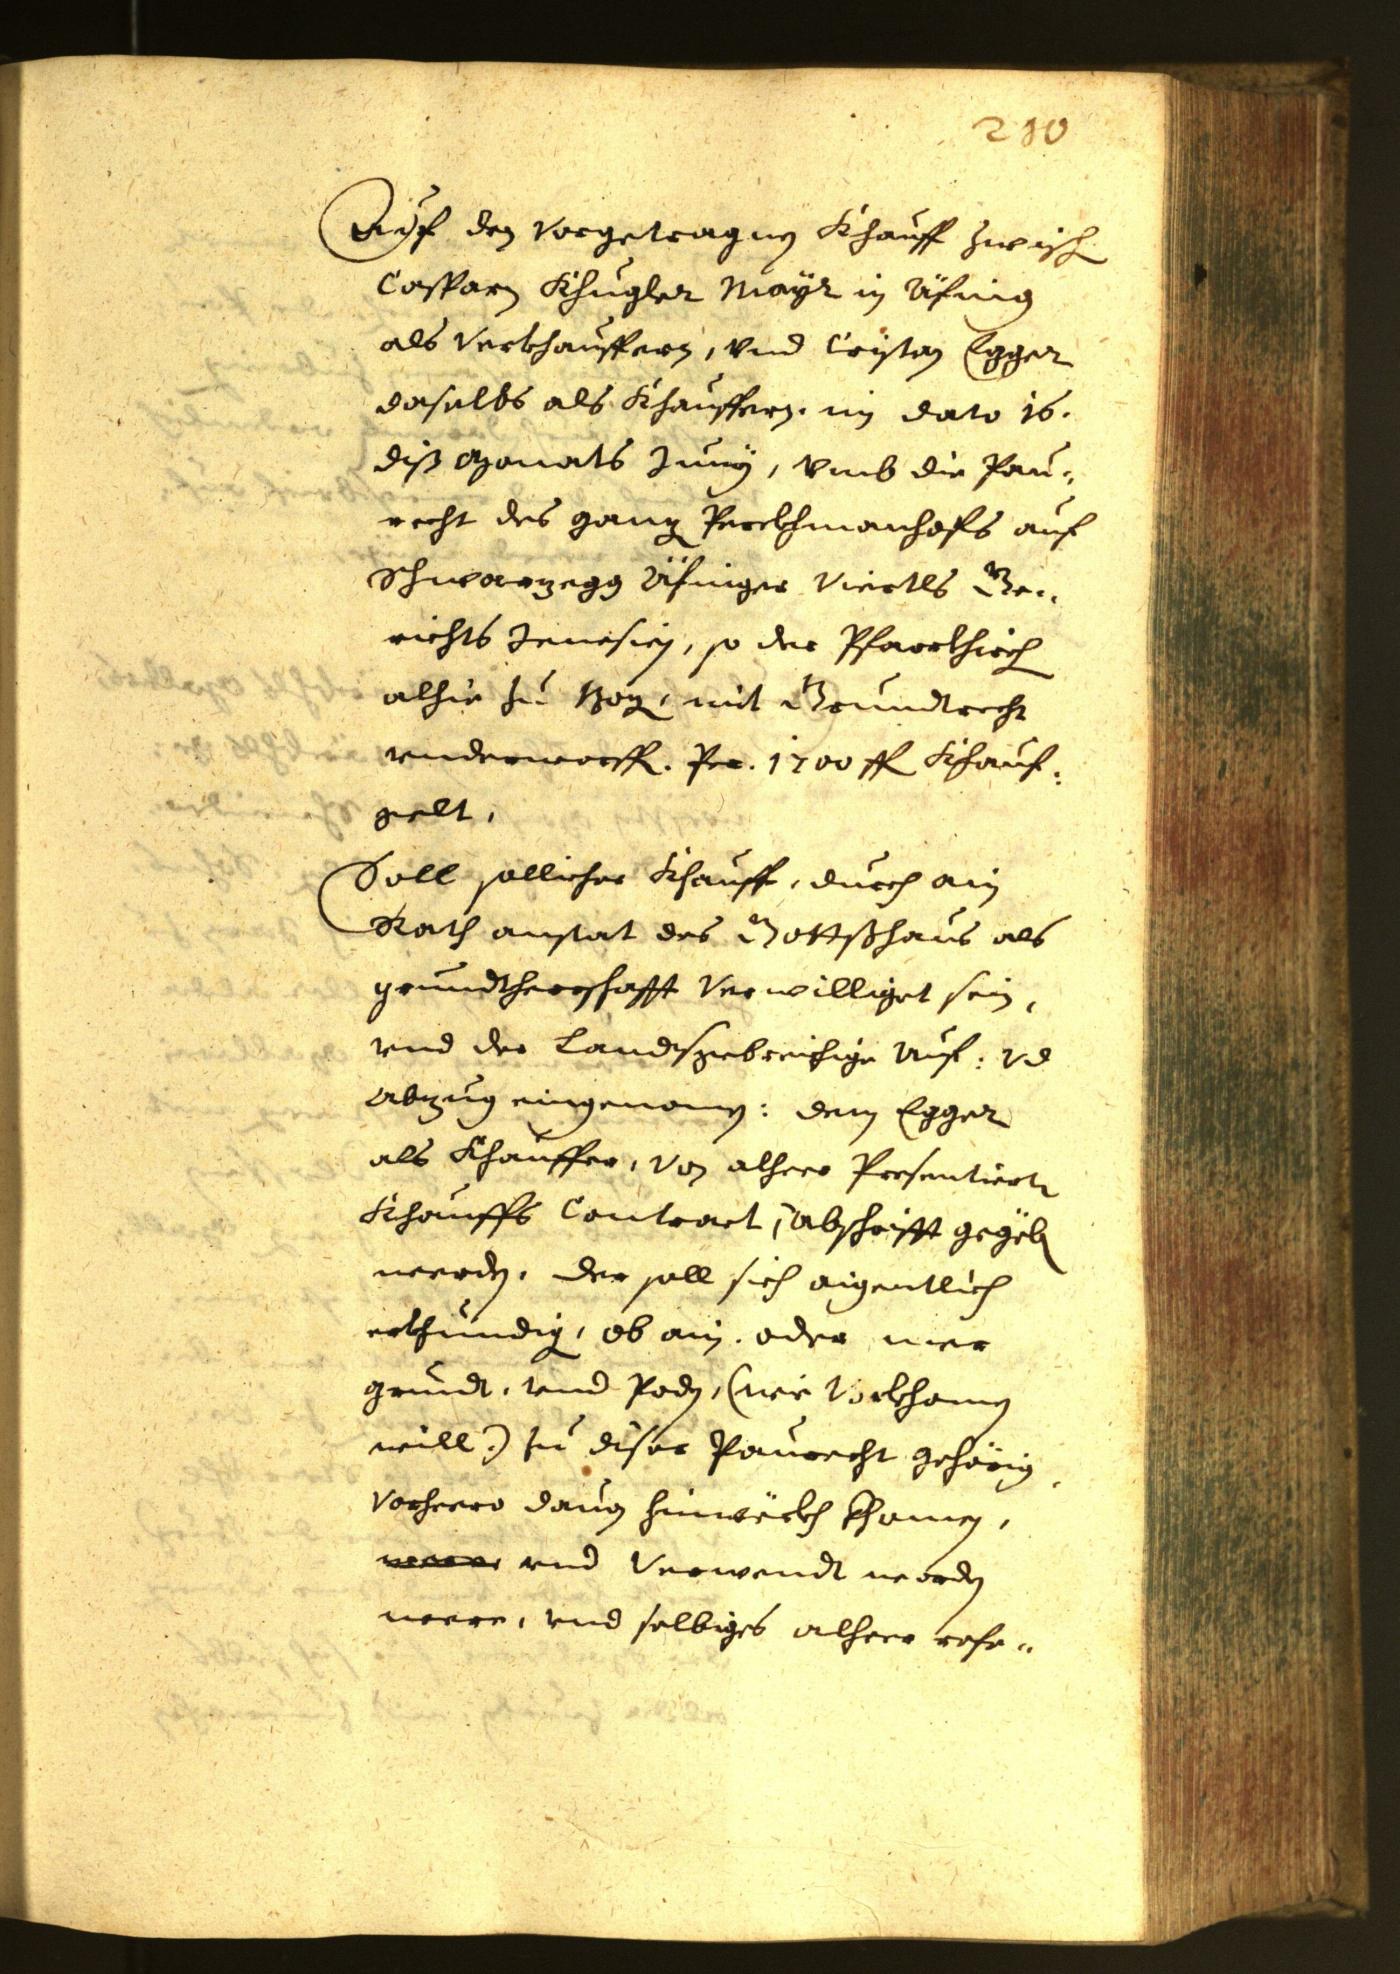 210
Auf den vorgetragnen Khauff zwisch
Casparn Khugler Mayr in Äfing
als Verkhauffern, vnd Cristan Egger
daselbs als Khauffern. in dato 16.
diß Monats Juny, vmb die Pau¬
recht des ganz Perckhmanhofs auf
Schwarzegg Äfinger Viertls Ge¬
richts Jenesien, so der Pfarrkhirch
alhie zu Boz, mit Grundtrecht
vnderworff. Per. 1700 fl Khauf¬
gelt,
Soll sollicher Khauff, durch ain
Rath anstat des Gottßhaus als
grundtherrschafft verwilliget sein,
vnd der Landsgebreichige Auf: vd
Abzug eingenomen: dem Egger
als Khauffer, von alheer Presentierte
Khauffs Contract, Abschrifft gegeben
werden, der soll sich aigentlich
erkhundig, ob ain. oder mer
grundt, vnd Poden, (wie vorkhomen
will:) zu diser Paurecht gehörig,
vorheero dauon hinwëckh khomen,
vnd verwendt worden
were, vnd selbiges alheer refe¬